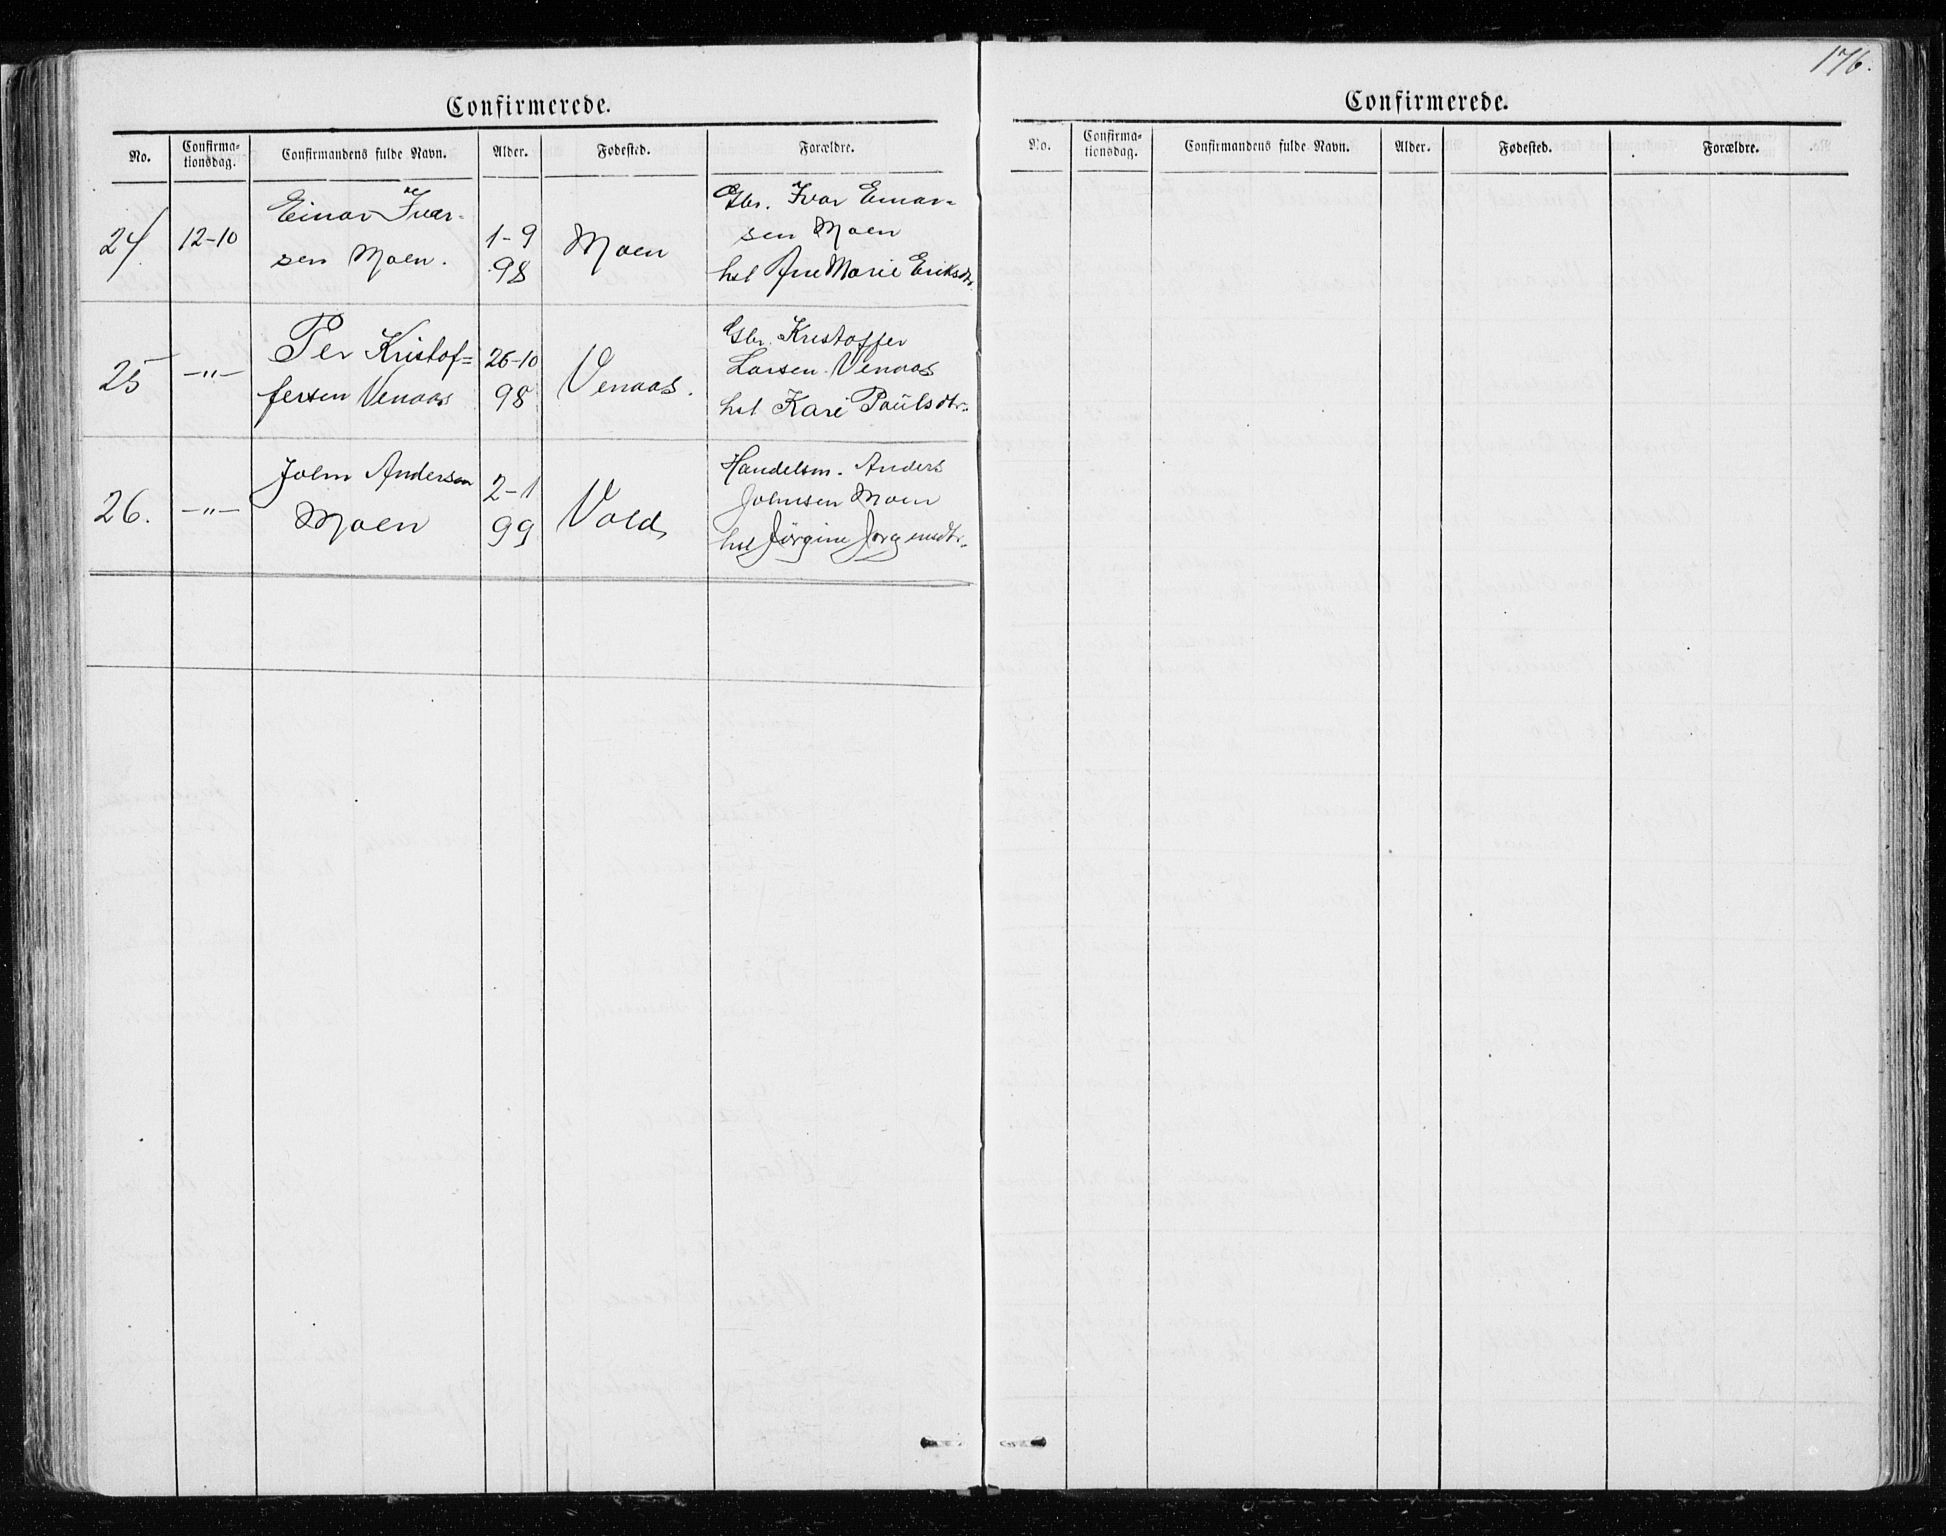 176.
Confirmerede.
No. Confirma-tionsdag. Confirmandens fulde Navn. Alder. Fødested. Forældre.
24 12-10 Einar Ivar- 1-9 Moen Gbr. Ivar Einar-
sen Moen. 98 sen Moen
hst Ane Marie Eriksdtr.
25 -"- Per Kristof- 26-10 Venaas. Gbr. Kristoffer
fersen Venaas 98 Larsen Venaas
hst Kari Paulsdtr.
26. -"- John Andersen 2-1 Vold Handelsm. Anders
Moen 99 Johnsen Moen
hst Jørgine Jørgensdtr.
Confirmerede.
No. Confirma-tionsdag. Confirmandens fulde Navn. Alder. Fødested. Forældre.